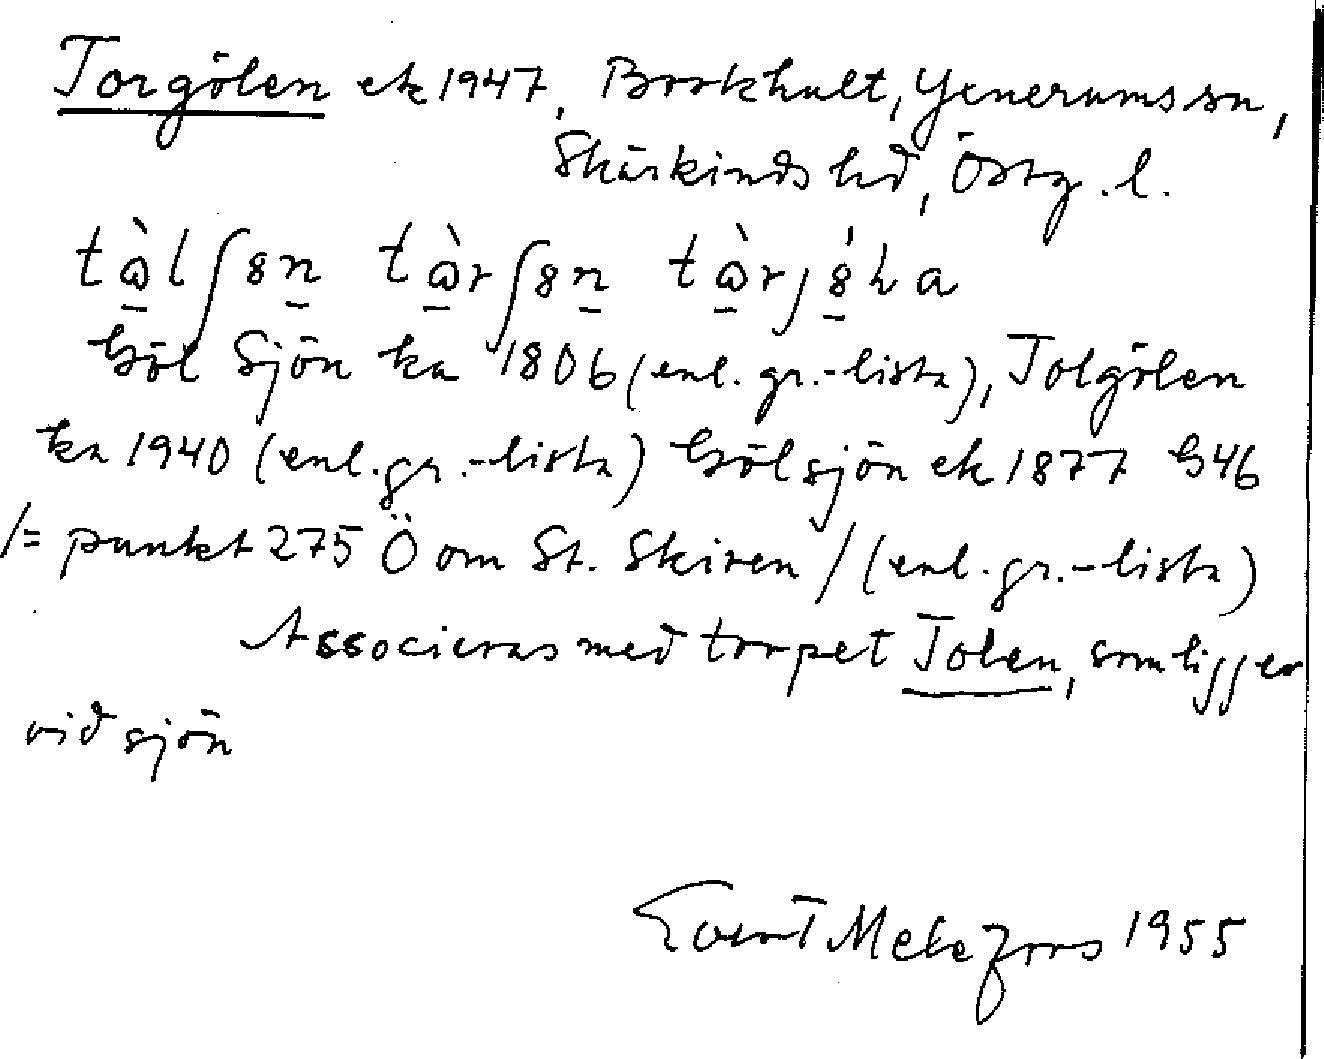 Torgölen ek 1947, Borkhult, Yxnerums sn,
Skärkinds hd, Östg. l.
tὼl∫8n tὼr∫8n tὼrȷ8́ha
Göl Sjön ka 1806 (enl. gr.-lista), Tolgölen
ka 1940 (enl. gr.-lista) Gölsjön ek 1877 G46
/= punkt 275 Ö om St. Skiren / (enl. gr.-lista)
Associeras med torpet Tolen, som ligger
vid sjön
Evert Melefors 1955